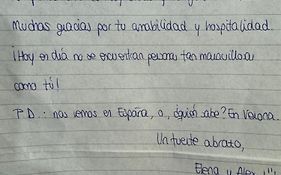 Muchas gracias por tu amabilidad y hospitalidad.
¡Hoy en día no se encuentran personas tan maravillosas
como tú!
P.D.: nos vemos en España, o, ¿quién sabe? En Verona.
Un fuerte abrazo,
Elena y Alex